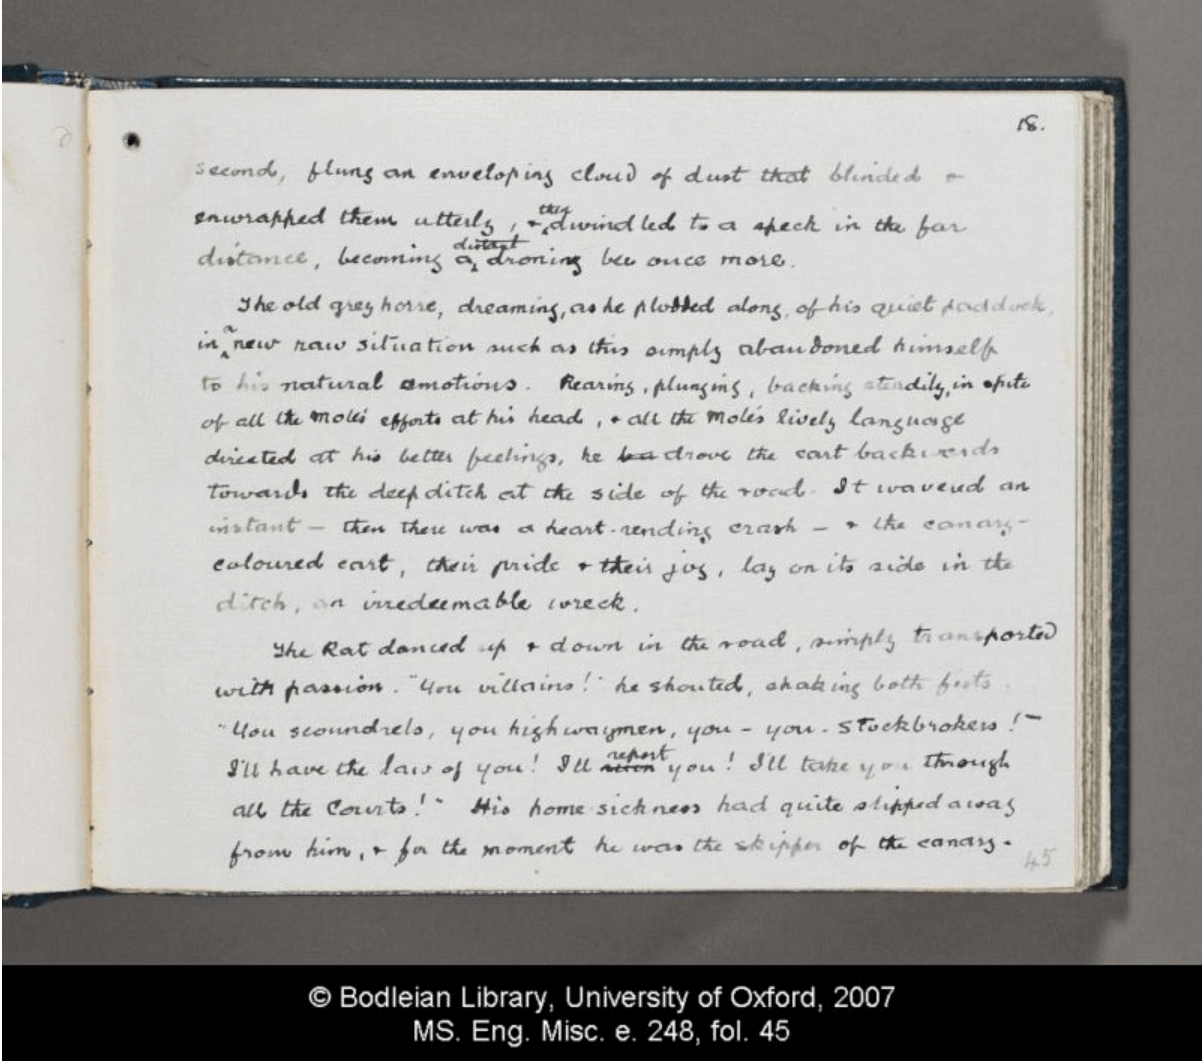 18.
second, flung an enveloping cloud of dust that blinded &
enwrapped them utterly, & then dwindled to a speck in the far
distance, becoming a distant droning bee once more.
The old grey horse, dreaming, as he plodded along, of his quiet paddock,
in a new raw situation such as this simply abandoned himself
to his natural emotions. Rearing, plunging, backing steadily, in spite
of all the Mole's efforts at his head, & all the Mole's lively language
directed at his better feelings, he drove the cart backwards
towards the deep ditch at the side of the road. It wavered an
instant – then there was a heart-rending crash – & the canary-
coloured cart, their pride & their joy, lay on its side in the
ditch, an irredeemable wreck.
The Rat danced up & down in the road, simply transported
with passion. "You villains!" he shouted, shaking both fists.
"You scoundrels, you highwaymen, you – you – stockbrokers! –
I'll have the law of you! I'll report you! I'll take you through
all the Courts!" His home-sickness had quite slipped away
from him, & for the moment he was the skipper of the canary-
45
© Bodleian Library, University of Oxford, 2007
MS. Eng. Misc. e. 248, fol. 45